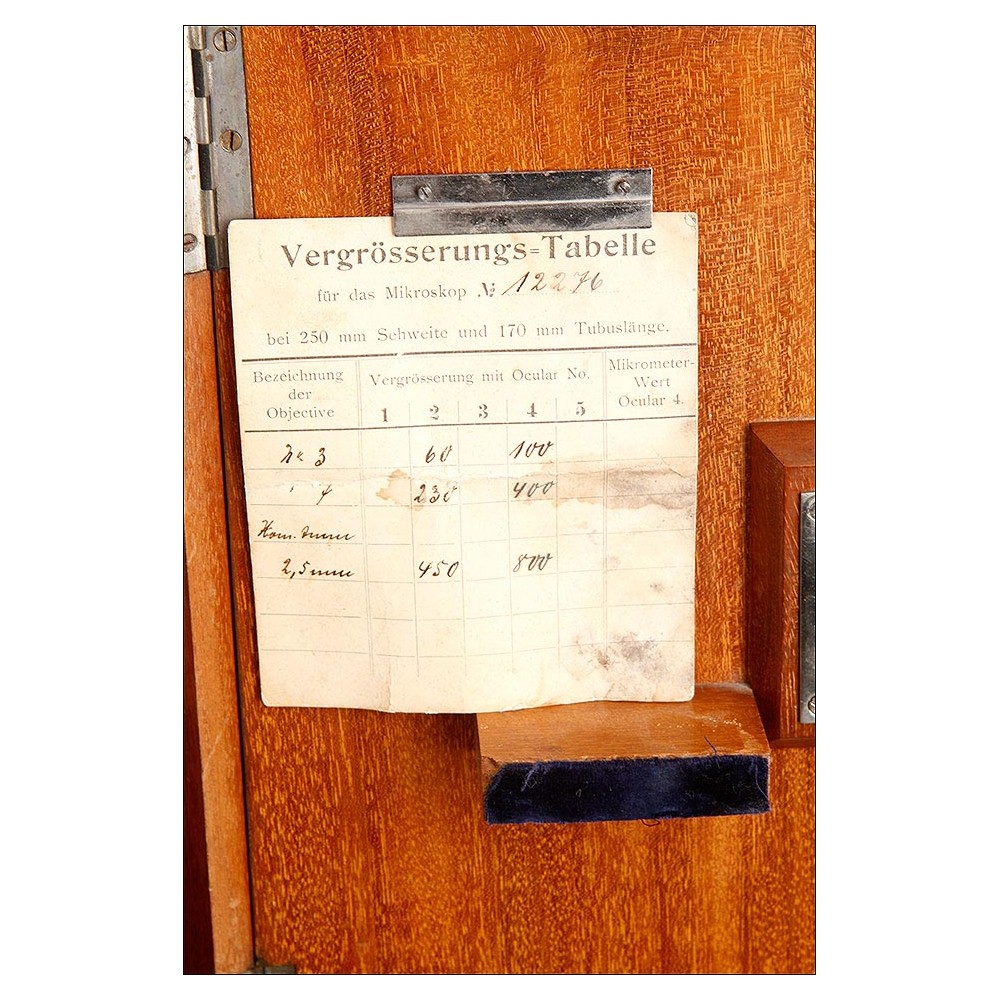 Vergrösserungs=Tabelle
für das Mikroskop № 12276
bei 250 mm Sehweite und 170 mm Tubuslänge.
Bezeichnung der Objective
Vergrösserung mit Ocular No.
1 2 3 4 5
Mikrometer-Wert Ocular 4.
No 3 60 100
" 7 230 400
Hom. Imm
2,5 mm 450 800